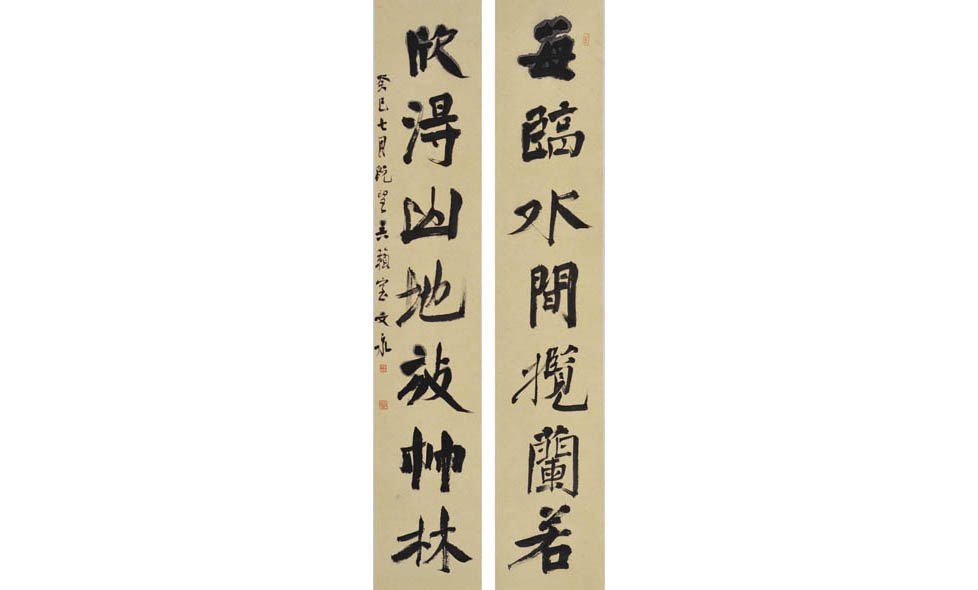 每臨水間攬蘭若
欣得山地放竹林
癸巳七月既望吳賴室文泳